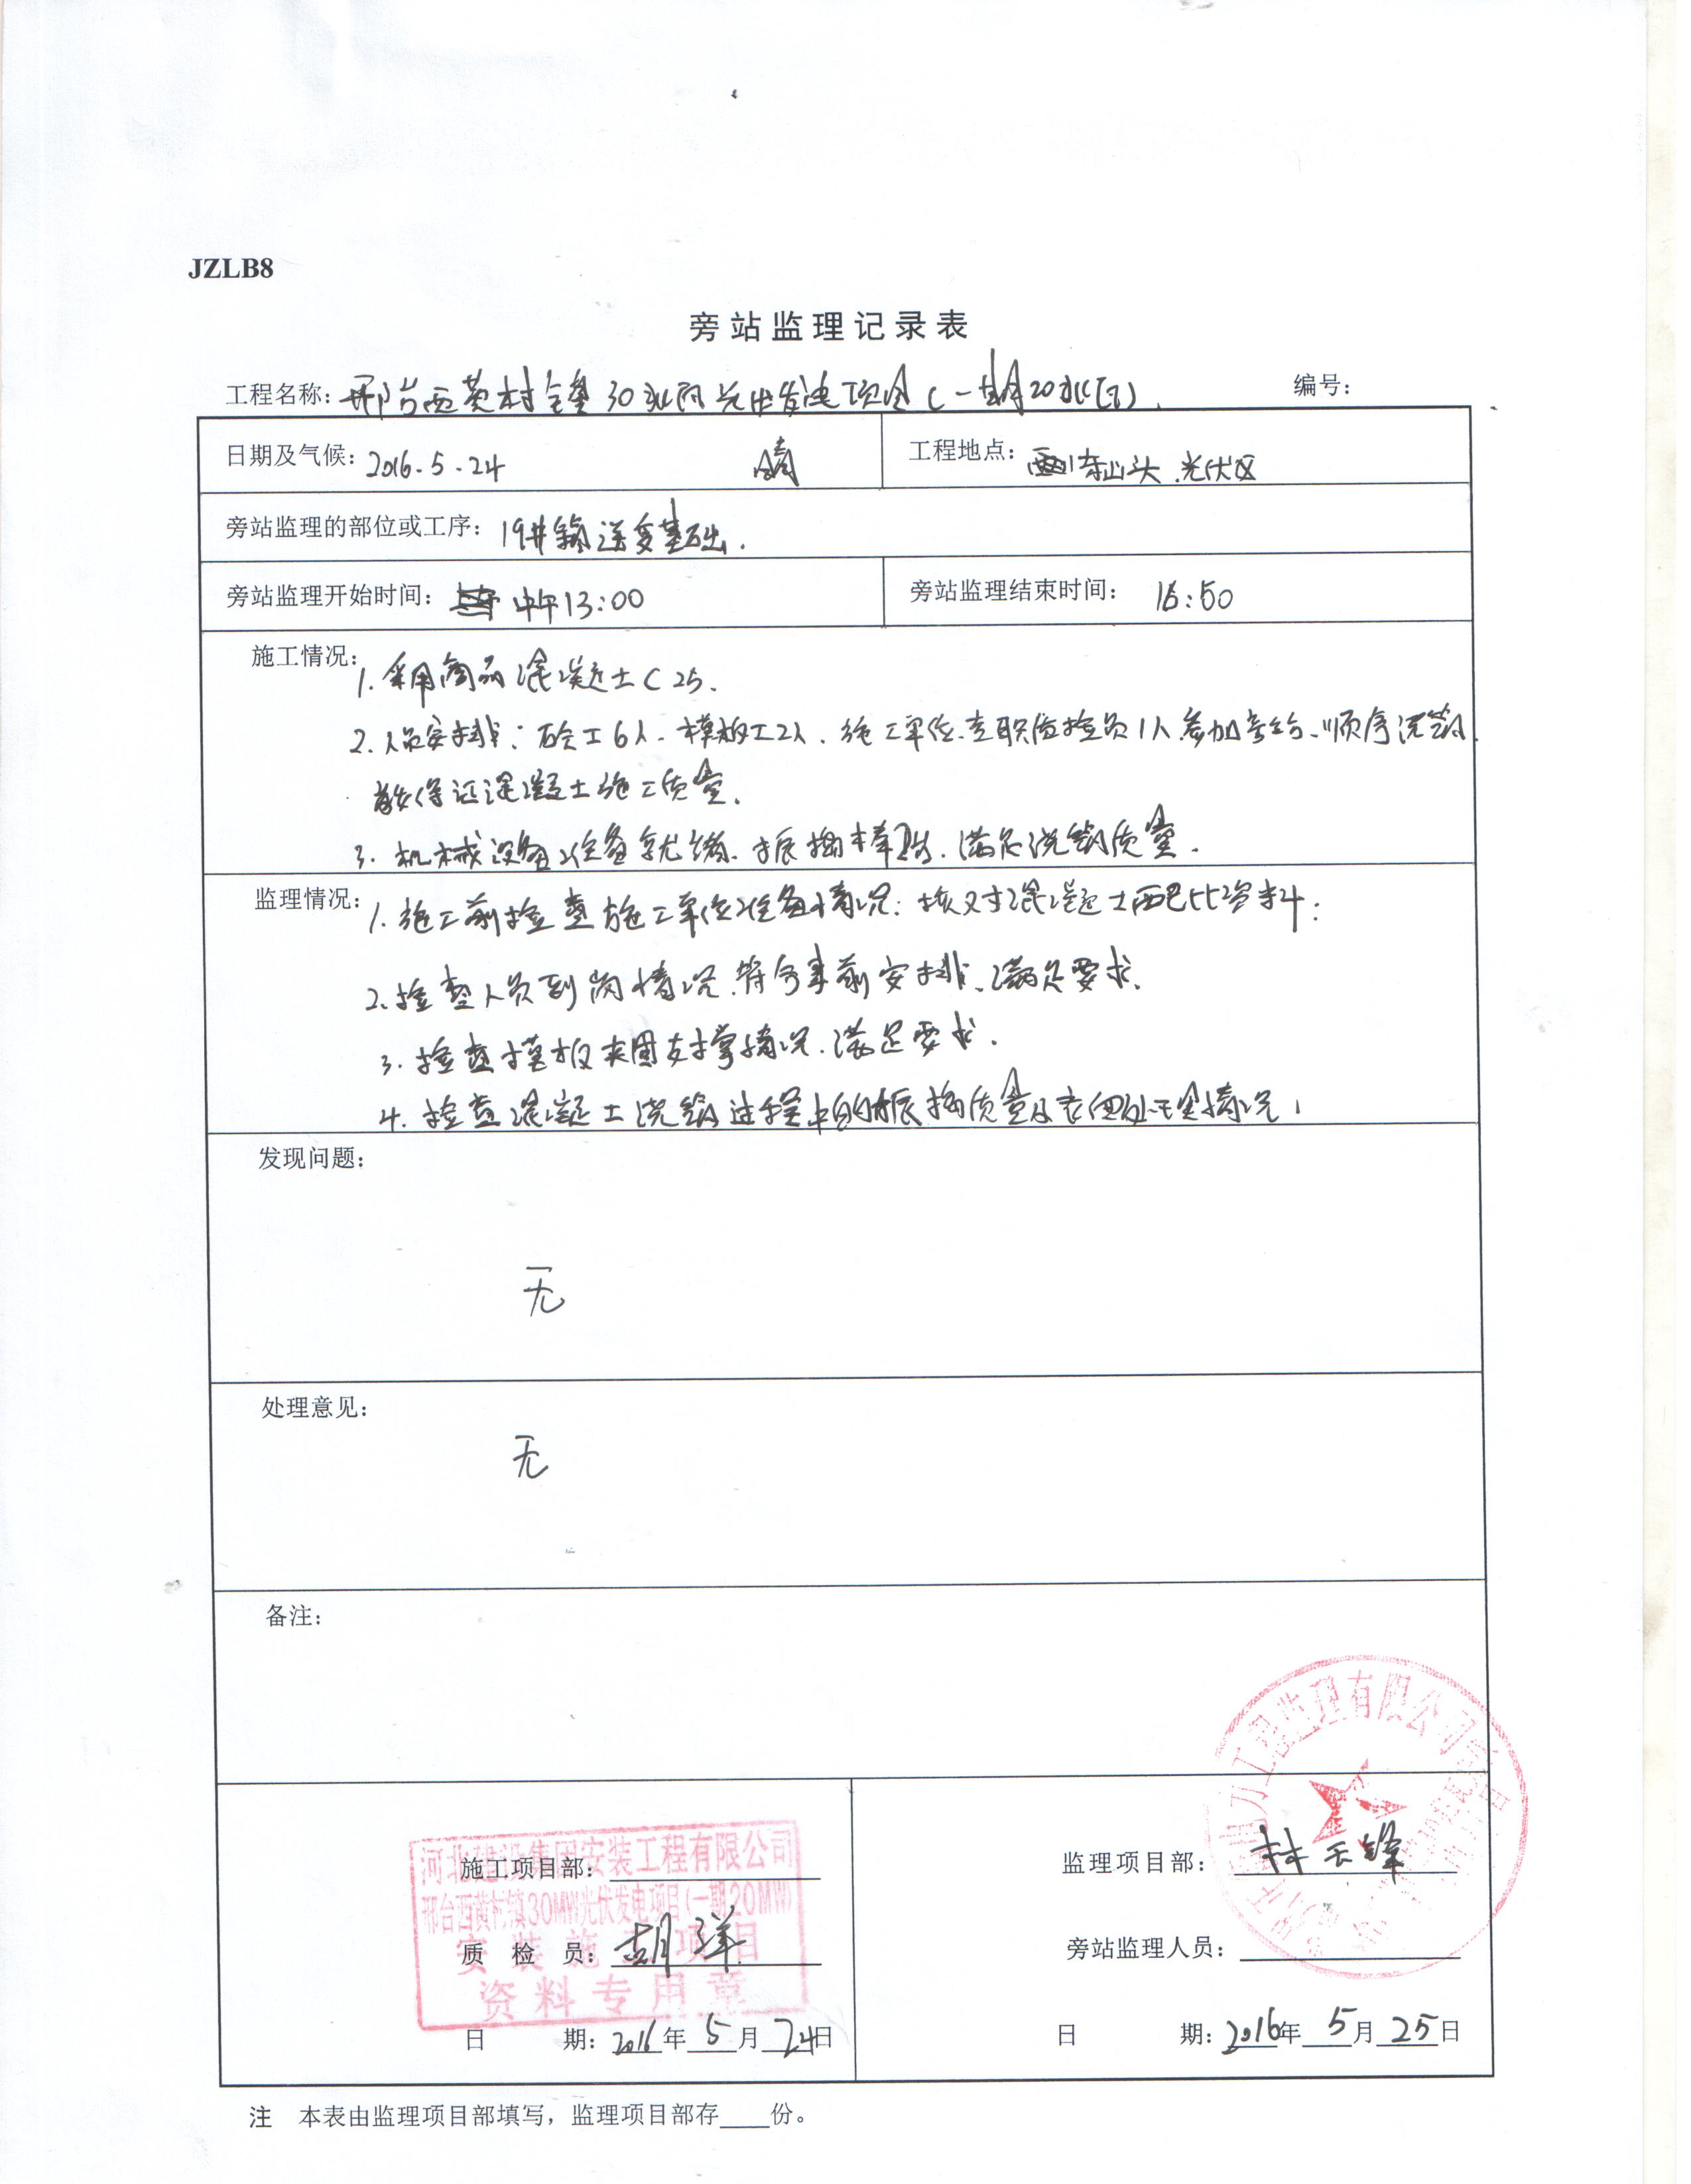 JZLB8
旁站监理记录表
工程名称：邢台西黄村镇30MW光伏发电项目(一期20MW) 编号：
日期及气候：2016.5.24 晴 工程地点：山头光伏区
旁站监理的部位或工序：19#箱逆变基础.
旁站监理开始时间：中午13:00 旁站监理结束时间：16:50
施工情况：1.采用商品混凝土C25.
2.人员安排：砼工6人、模板工2人、施工单位专职质检员1人参加旁站、顺序浇筑
能保证混凝土施工质量.
3.机械设备准备就绪、振捣棒2台、满足浇筑质量.
监理情况：1.施工前检查施工单位准备情况；核对混凝土配比资料；
2.检查人员到岗情况.符合事前安排、满足要求.
3.检查模板夹固支撑情况.满足要求.
4.检查混凝土浇筑过程中的振捣质量及表面处理情况;
发现问题：
无
处理意见：
无
备注：
电力工程监理有限公司
河北建设集团安装工程有限公司
邢台西黄村镇30MW光伏发电项目(一期20MW)
安装施工项目
资料专用章
施工项目部： 监理项目部：林玉锋
质检员：胡洋 旁站监理人员：
日期：2016年5月24日 日期：2016年5月25日
注 本表由监理项目部填写，监理项目部存____份。